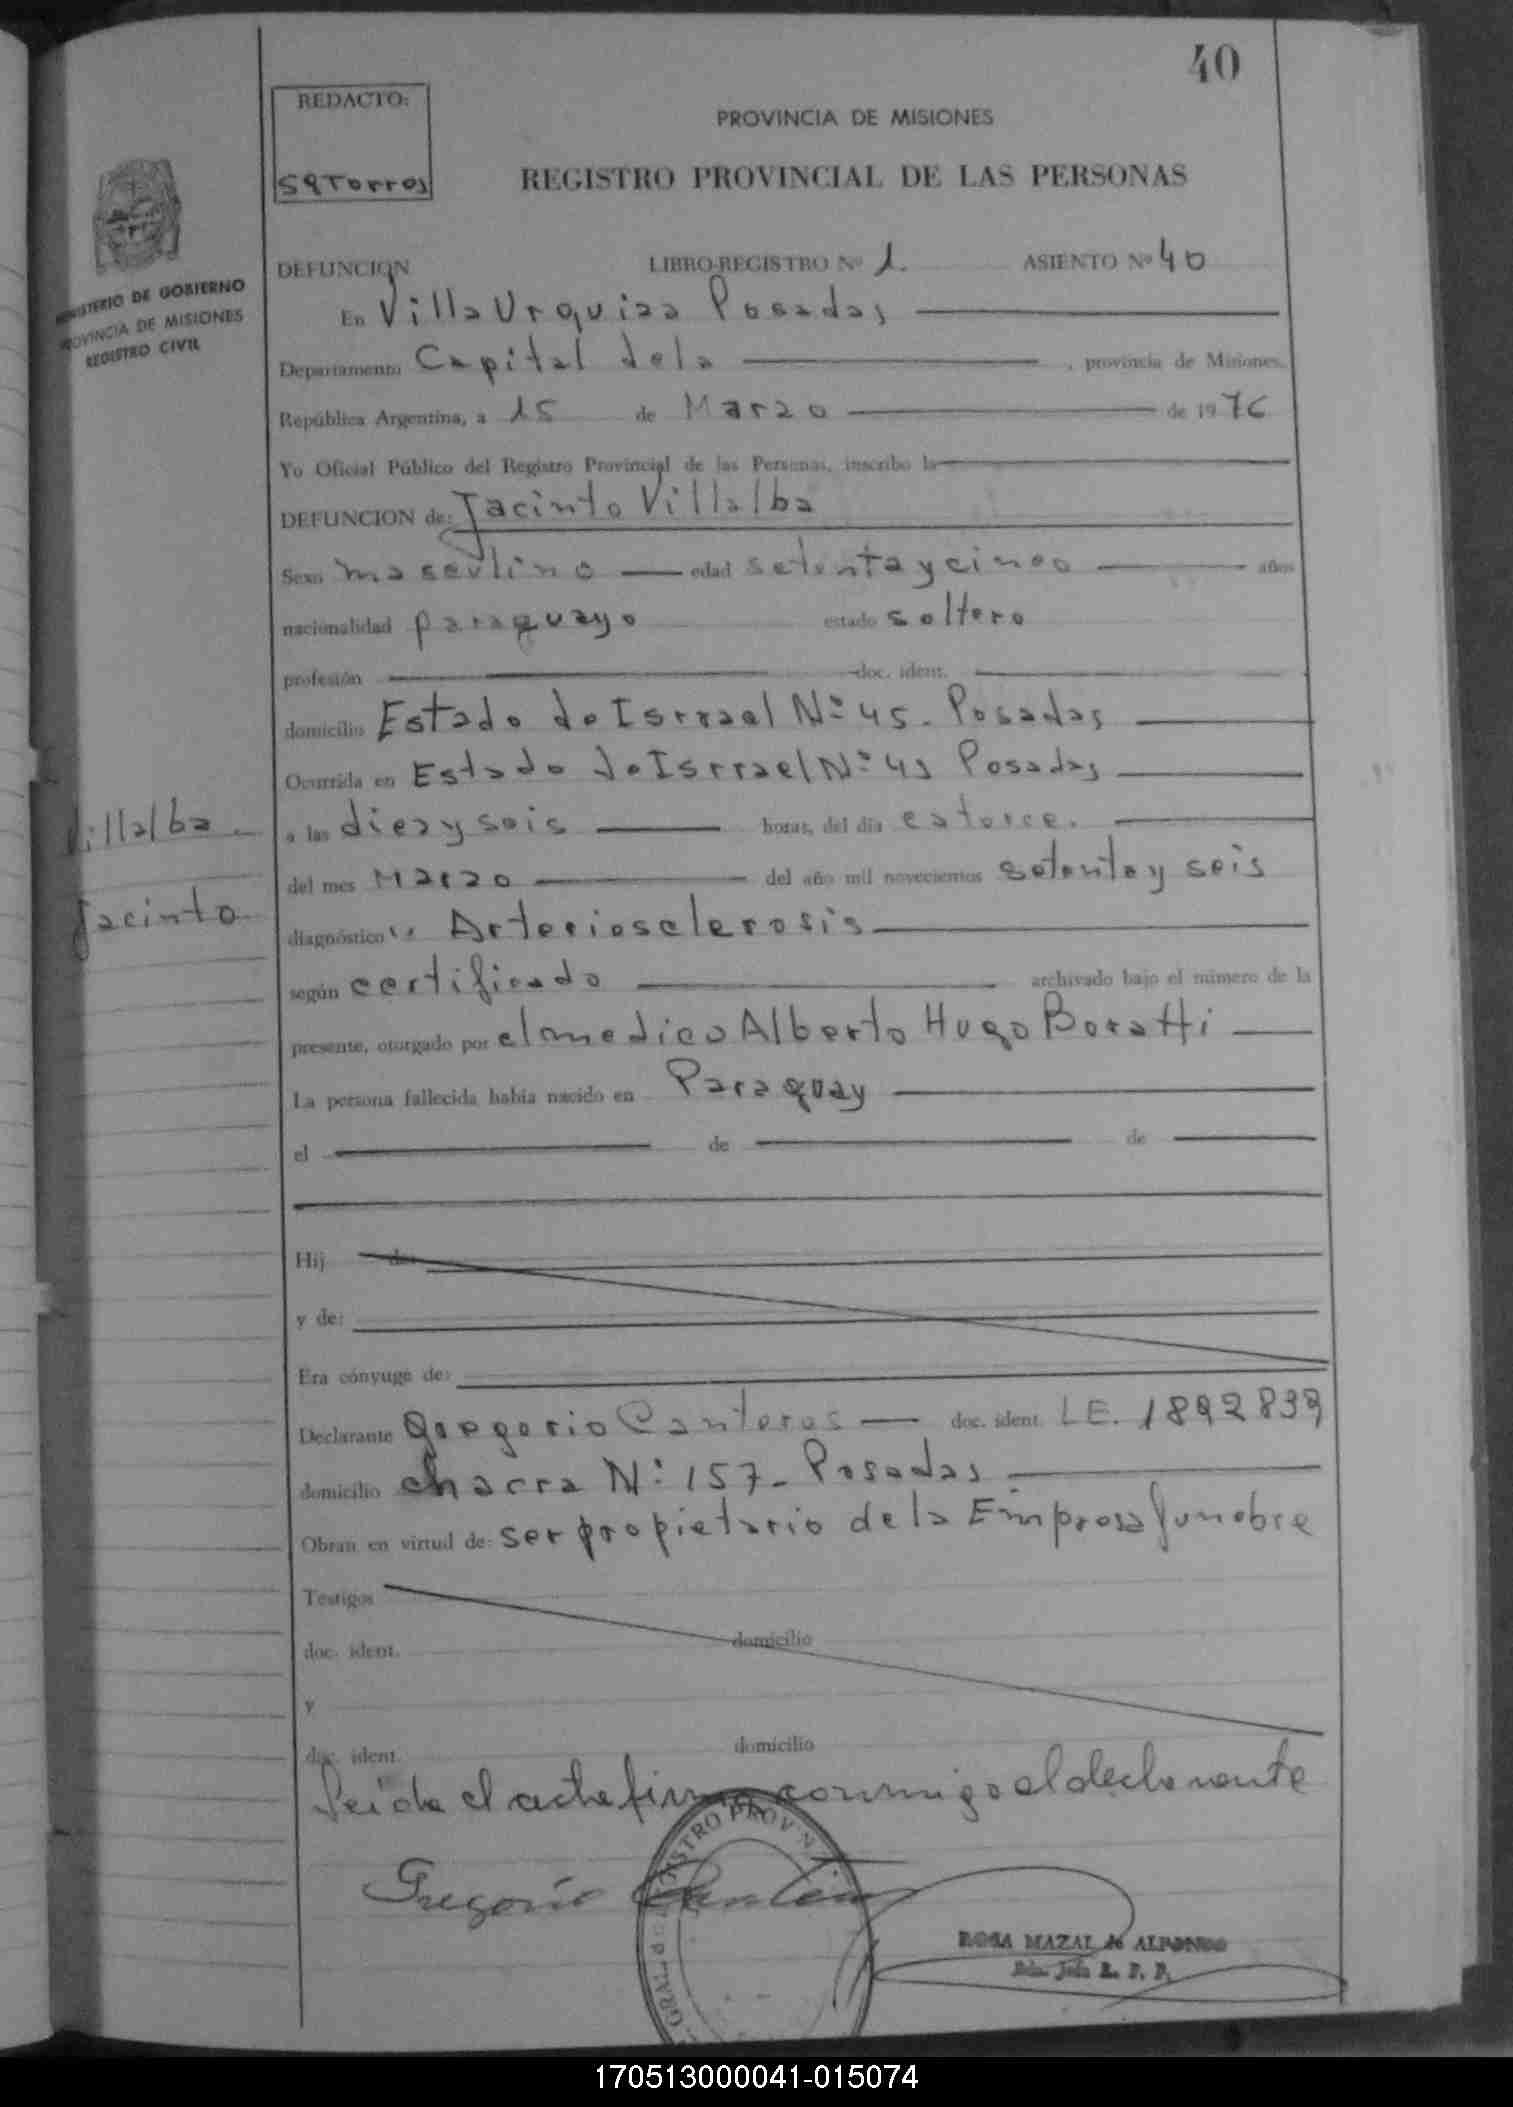 40
REDACTO:
S9Torres
PROVINCIA DE MISIONES
REGISTRO PROVINCIAL DE LAS PERSONAS
MINISTERIO DE GOBIERNO
PROVINCIA DE MISIONES
REGISTRO CIVIL
DEFUNCION LIBRO-REGISTRO Nº 1. ASIENTO Nº 40
En Villa Urquiza Posadas
Departamento Capital dela , provincia de Misiones,
República Argentina, a 15 de Marzo de 1976
Yo Oficial Público del Registro Provincial de las Personas, inscribo la
DEFUNCION de: Jacinto Villalba
Sexo masculino edad setenta y cinco años
nacionalidad paraguayo estado soltero
profesión doc. ident.
domicilio Estado de Isrrael Nº 45. Posadas
Ocurrida en Estado de Isrrael Nº 45 Posadas
a las diez y seis horas, del día catorce.
del mes Marzo del año mil novecientos setenta y seis
Villalba
Jacinto
diagnóstico Arteriosclerosis
según certificado archivado bajo el número de la
presente, otorgado por el medico Alberto Hugo Boratti
La persona fallecida había nacido en Paraguay
el de de
Hij de:
y de:
Era cónyuge de:
Declarante Gregorio Canteros doc. ident. LE. 1892839
domicilio chacra Nº 157- Posadas
Obran en virtud de: ser propietario de la Empresa funebre
Testigos
doc. ident. domicilio
y
doc. ident. domicilio
Leida el acta firma conmigo el declarante
Gregorio Canteros
ROSA MAZAL de ALFONSO
170513000041-015074